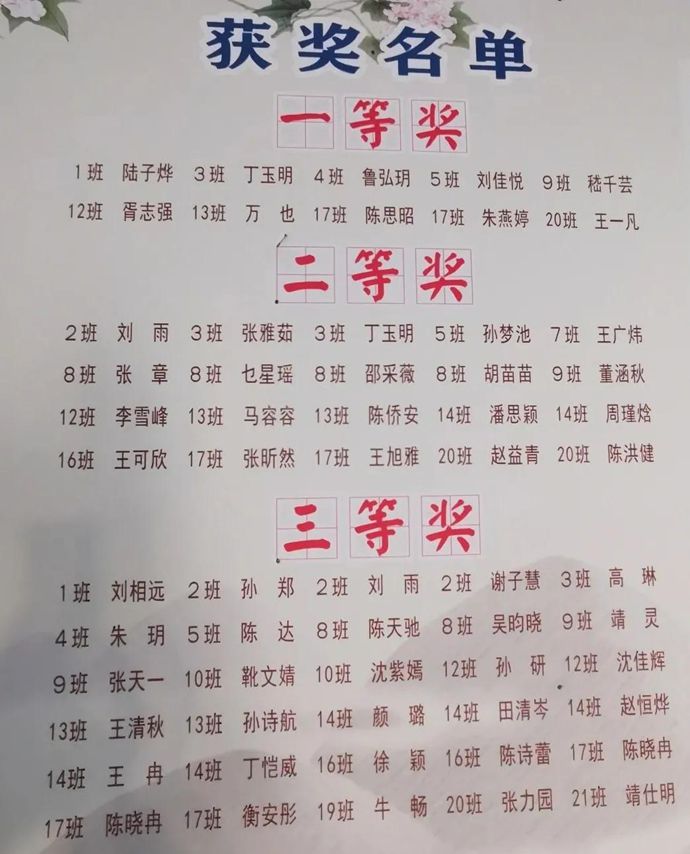 获奖名单
一等奖
1班 陆子烨 3班 丁玉明 4班 鲁弘玥 5班 刘佳悦 9班 嵇千芸
12班 胥志强 13班 万也 17班 陈思昭 17班 朱燕婷 20班 王一凡
二等奖
2班 刘雨 3班 张雅茹 3班 丁玉明 5班 孙梦池 7班 王广炜
8班 张章 8班 乜星瑶 8班 邵采薇 8班 胡苗苗 9班 董涵秋
12班 李雪峰 13班 马容容 13班 陈侨安 14班 潘思颖 14班 周瑾焓
16班 王可欣 17班 张昕然 17班 王旭雅 20班 赵益青 20班 陈洪健
三等奖
1班 刘相远 2班 孙郑 2班 刘雨 2班 谢子慧 3班 高琳
4班 朱玥 5班 陈达 8班 陈天驰 8班 吴昀晓 9班 靖灵
9班 张天一 10班 靴文婧 10班 沈紫嫣 12班 孙研 12班 沈佳辉
13班 王清秋 13班 孙诗航 14班 颜璐 14班 田清岑 14班 赵恒烨
14班 王冉 14班 丁恺威 16班 徐颖 16班 陈诗蕾 17班 陈晓冉
17班 陈晓冉 17班 衡安彤 19班 牛畅 20班 张力园 21班 靖仕明